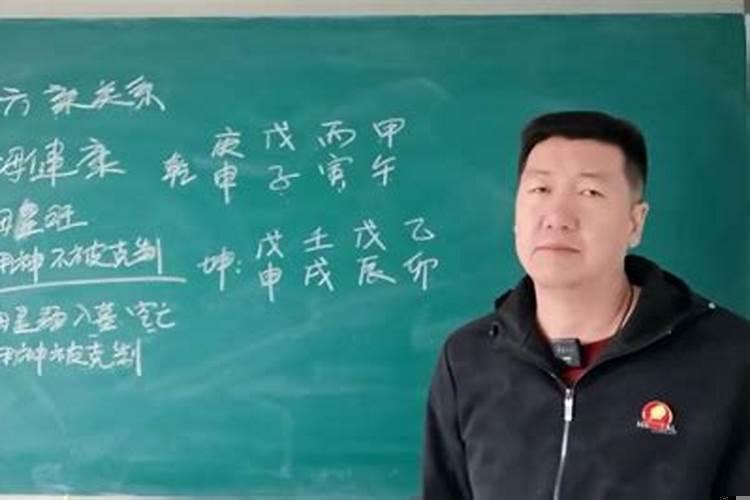 六亲关系
母健康
母星旺
用神不被克制
母星弱入墓空亡
用神被克制
乾 庚 戊 丙 甲
申 子 寅 午
坤: 戊 壬 戊 乙
申 戌 辰 卯